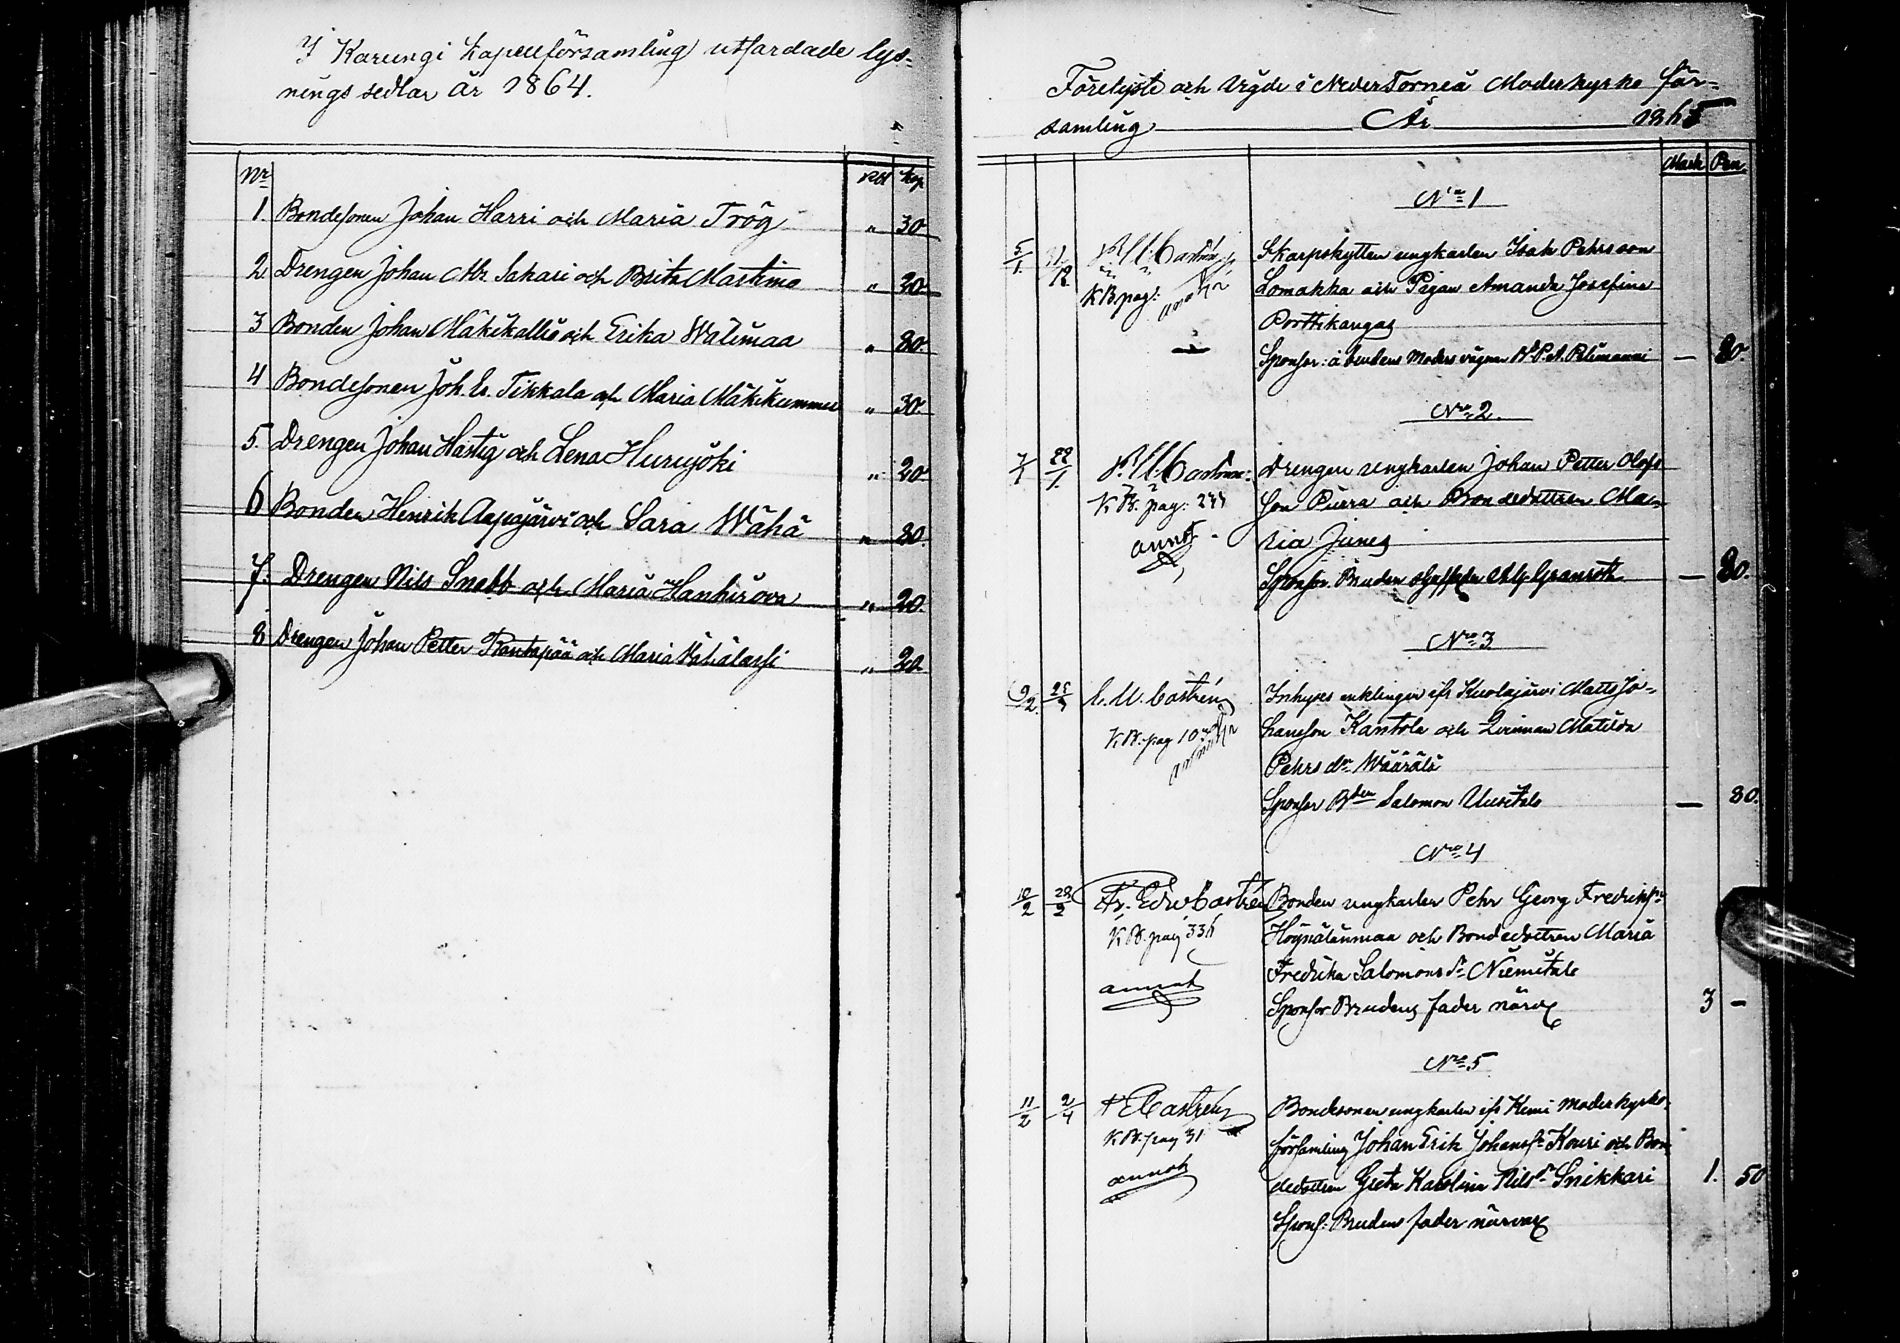 I Karungi kapellförsamling utfärdade lys-
nings sedlar år 1864.
Nr Rbl kop
1. Bondesonen Johan Harri och Maria Trög " 30
2. Drengen Johan Ab. Sakari och Brita Martimo " 20
3 Bonden Johan Mäkikallio och Erika Walimaa " 80.
4 Bondesonen Joh. Er. Tikkala och Maria Mäkikummu " 30.
5. Drengen Johan Hastig och Lena Hurujöki " 20
6 Bonden Henrik Aapajärvi och Sara Wähä " 80.
7. Drengen Nils Snebb och Maria Hanhirova " 20.
8 Drengen Johan Petter Rantapää och Maria " 20.
Förelyste och vigde i Neder Torneå Moderkyrko för-
samling År 1865
Mark Pen.
No 1
5/1 Skarpskytten ungkarlen Isak Pehrsson
K.B. pag: Lomakka och Pigan Amanda Josefina
Porttikangas
Sponsor: å brudens Moders vägnar — 80
No 2.
7/1 22/1 Castrén Drengen ungkarlen Johan Petter Olofs
K.B. pag: son Purra och Bondedottren Ma-
annot. ria Junes
Sponsor Bruden Granroth — 80.
No 3
9/2 C. M. Castrén Inhyses enklingen ifr Kuolajärvi Matts Jo-
K.B. pag hansson Kantola och Qvinnan Matilda
Pehrs dr Wäärälä
Sponsor Bden Salomon Uusitalo — 80.
No 4
10/2 Fr. Edv Castrén Bonden ungkarlen Pehr Georg Fredrikss:
K.B. pag 336 och Bondedottren Maria
annot Fredrika Salomons dr Niemitalo
Sponsor Brudens fader närv. 3 —
No 5
11/2 2/4 F E Castrén Bondesonen ungkarlen ifr Kemi moderkyrko
K.B. pag 31 församling Johan Erik Johanss: Kouri och Bon-
annot dedottren Greta Karolina Nils dr Snikkari 1. 50
Spons: Brudens fader närvar